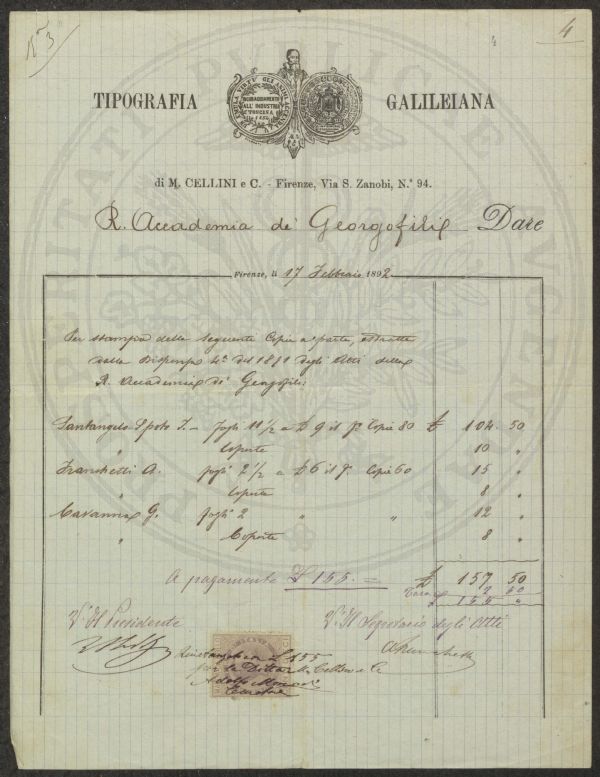 N° 3
4
4
TIPOGRAFIA GALILEIANA
di M. CELLINI e C. - Firenze, Via S. Zanobi, N.° 94.
R. Accademia de' Georgofili Dare
Firenze, li 17 Febbraio 1892
Per stampa delle seguenti Copie a parte, estratte
dalla Dispensa 4a del 1891 degli Atti della
R. Accademia de' Georgofili:
Santangelo Spoto I. - fogli 11 1/2 a £ 9 il f.° Copie 80 £ 104. 50
" Coperte 10 "
Franchetti A. fogli 2 1/2 a £ 6 il f.° Copie 60 15 "
" Coperte 8 "
Cavanna G. fogli 2 " " 12 "
" Coperte 8 "
£ 157 50
A pagamento £ 155. =
Tara 2 50
155 "
V° Il Presidente V° Il Segretario degli Atti
per la Ditta M. Cellini e C.
Adolfo